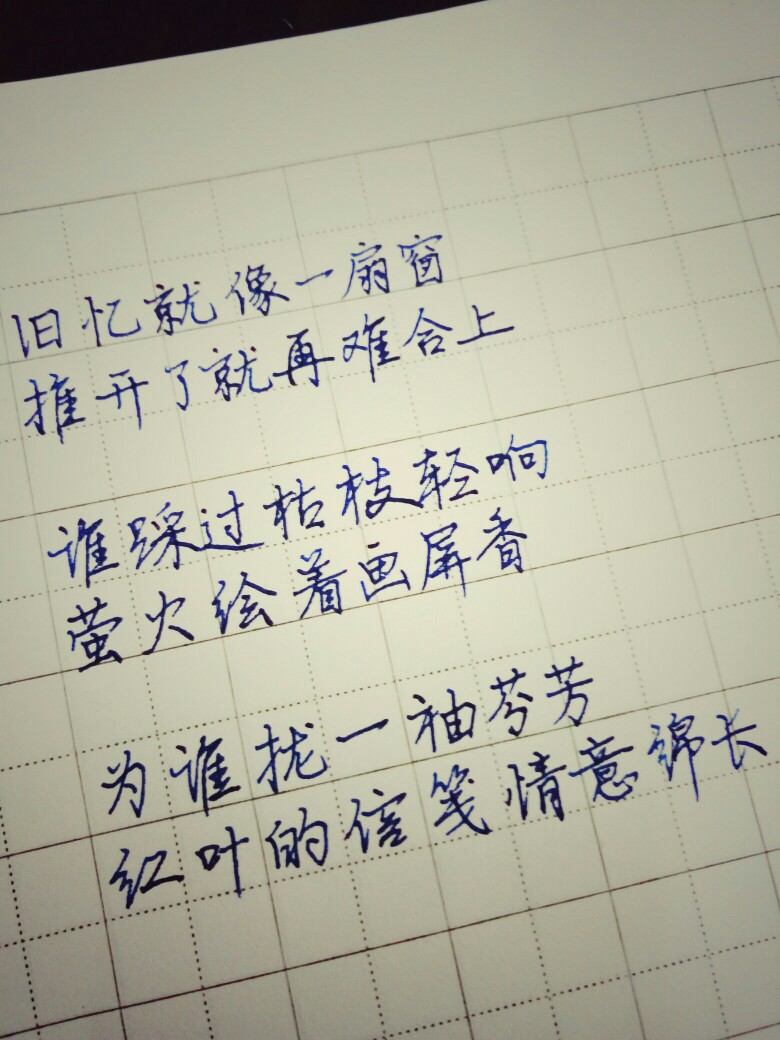 旧忆就像一扇窗
推开了就再难合上
谁踩过枯枝轻响
萤火绘着画屏香
为谁拢一袖芬芳
红叶的信笺情意绵长